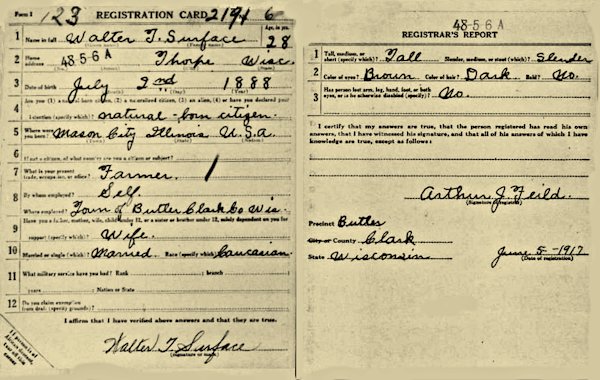 Form 1 123 REGISTRATION CARD 2191 6
1 Name in full Walter T. Surface Age, in yrs. 28
2 Home address 48-5-6-A Thorpe Wisc.
3 Date of birth July 2nd 1888
(Month) (Day) (Year)
4 Are you (1) a natural-born citizen, (2) a naturalized citizen, (3) an alien, (4) or have you declared your
intention (specify which)? natural-born citizen.
5 Where were you born? Mason City Illinois U.S.A.
6 If not a citizen, of what country are you a citizen or subject?
7 What is your present trade, occupation, or office? Farmer. 1
8 By whom employed? Self
Where employed? Town of Butler Clark Co Wis.
9 Have you a father, mother, wife, child under 12, or a sister or brother under 12, solely dependent on you for
support (specify which)? Wife.
10 Married or single (which)? Married. Race (specify which)? Caucasian.
11 What military service have you had? Rank ; branch
years ; Nation or State
12 Do you claim exemption from draft (specify grounds)?
I affirm that I have verified above answers and that they are true.
Walter T. Surface
(Signature or mark)
48-5-6 A
REGISTRAR'S REPORT
1 Tall, medium, or short (specify which)? Tall Slender, medium, or stout (which)? Slender
2 Color of eyes? Brown Color of hair? Dark. Bald? No.
3 Has person lost arm, leg, hand, foot, or both eyes, or is he otherwise disabled (specify)? No.
I certify that my answers are true, that the person registered has read his own
answers, that I have witnessed his signature, and that all of his answers of which I have
knowledge are true, except as follows:
Arthur J. Feild.
(Signature of registrar)
Precinct Butler
City or County Clark
State Wisconsin June 5-1917
(Date of registration)